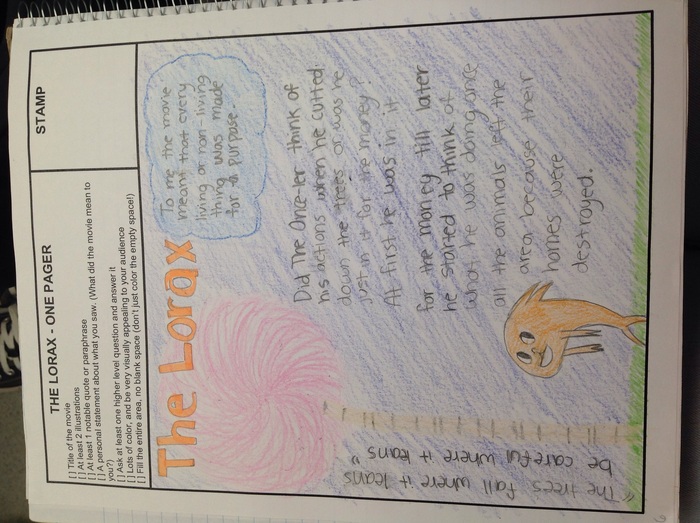 THE LORAX - ONE PAGER
[ ] Title of the movie
[ ] At least 2 illustrations
[ ] At least 1 notable quote or paraphrase
[ ] A personal statement about what you saw. (What did the movie mean to
you?)
[ ] Ask at least one higher level question and answer it
[ ] Lots of color, and be very visually appealing to your audience
[ ] Fill the entire area, no blank space (don't just color the empty space!)
STAMP
The Lorax
To me the movie
meant that every
living or non living
thing was made
for a purpose.
Did The Once-ler think of
his actions when he cutted
down the trees or was he
just in it for the money?
At first he was in it
for the money till later
he started to think of
what he was doing once
all the animals left the
area because their
homes were
destroyed.
"The trees fall where it leans
be careful where it leans"